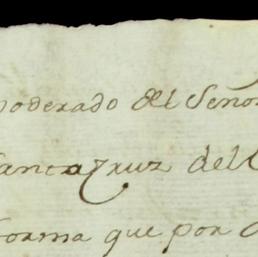 poderado del Señor
SantaCruz del
forma que por